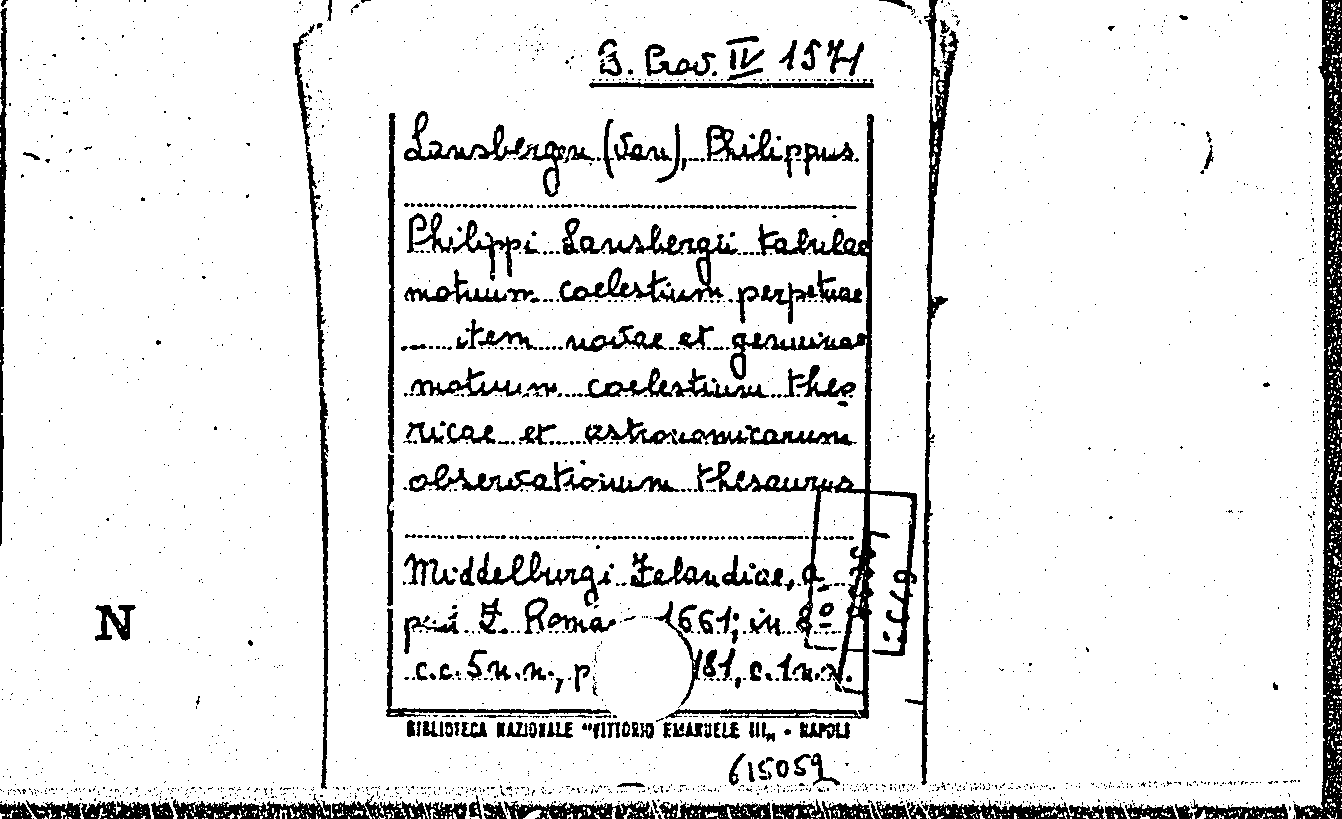 B. Prov. IV 1571
Lansbergen (van), Philippus
Philippi Lansbergii tabulae
motuum coelestium perpetuae
... item novae et genuinae
motuum coelestium theo
ricae et astronomicarum
observationum thesaurus
Middelburgi Zelandiae, a
pud Z. Roma 1661; in 8º
c.c. 5 n.n., p 181, c. 1 n.n.
N
BIBLIOTECA NAZIONALE "VITTORIO EMANUELE III" - NAPOLI
615059